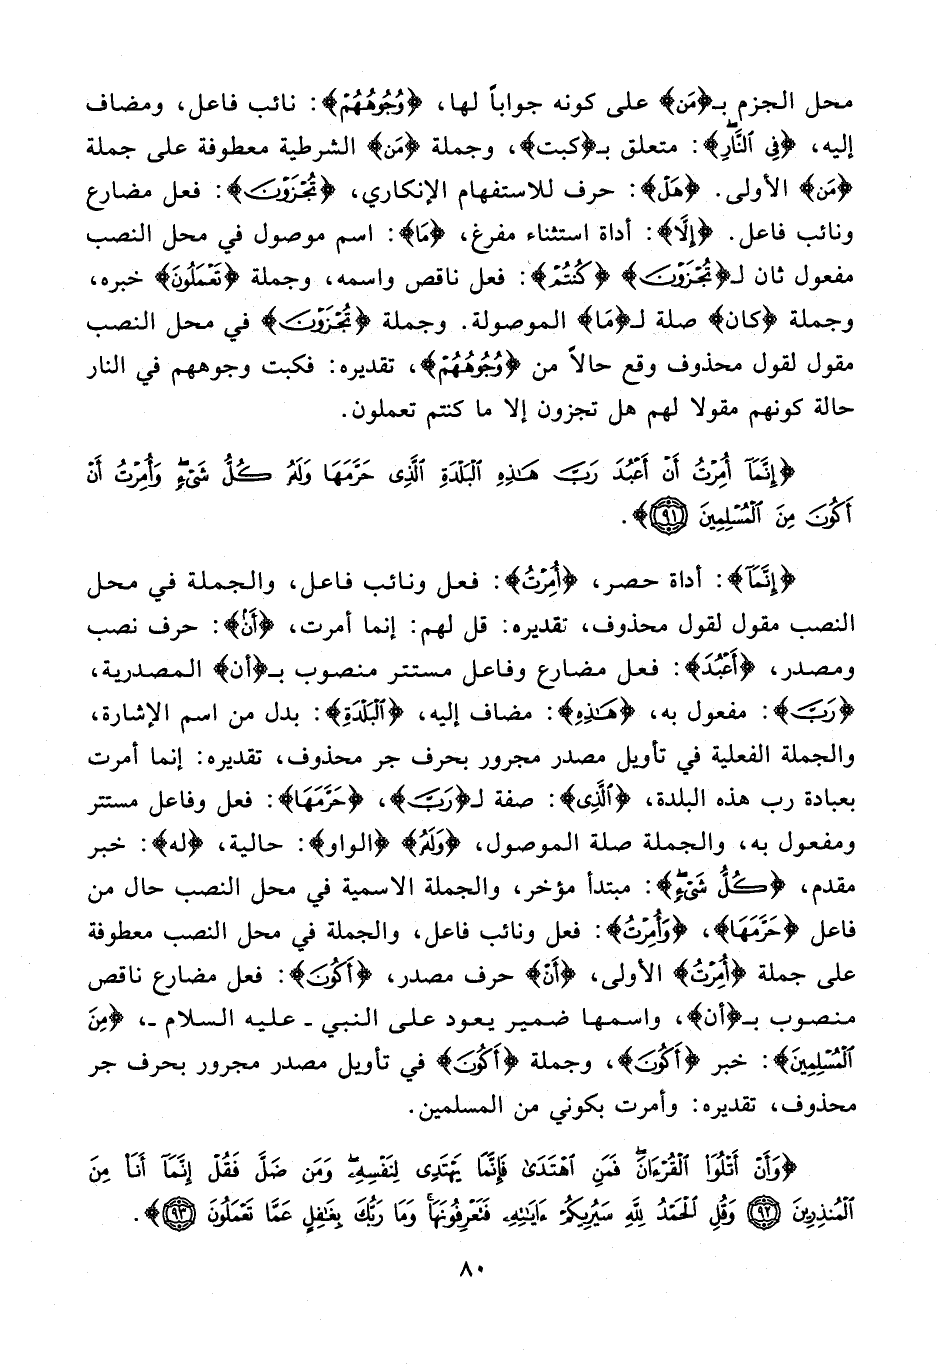 محل الجزم بـ﴿مَن﴾ على كونه جواباً لها، ﴿وُجُوهُهُمْ﴾: نائب فاعل، ومضاف
إليه، ﴿فِى ٱلنَّارِ﴾: متعلق بـ﴿كبت﴾، وجملة ﴿مَن﴾ الشرطية معطوفة على جملة
﴿مَن﴾ الأولى. ﴿هَلْ﴾: حرف للاستفهام الإنكاري، ﴿تُجْزَوْنَ﴾: فعل مضارع
ونائب فاعل. ﴿إِلَّا﴾: أداة استثناء مفرغ، ﴿مَا﴾: اسم موصول في محل النصب
مفعول ثان لـ﴿تُجْزَوْنَ﴾ ﴿كُنتُمْ﴾: فعل ناقص واسمه، وجملة ﴿تَعْمَلُونَ﴾ خبره،
وجملة ﴿كان﴾ صلة لـ﴿مَا﴾ الموصولة. وجملة ﴿تُجْزَوْنَ﴾ في محل النصب
مقول لقول محذوف وقع حالاً من ﴿وُجُوهُهُمْ﴾، تقديره: فكبت وجوههم في النار
حالة كونهم مقولا لهم هل تجزون إلا ما كنتم تعملون.
﴿إِنَّمَآ أُمِرْتُ أَنْ أَعْبُدَ رَبَّ هَـٰذِهِ ٱلْبَلْدَةِ ٱلَّذِى حَرَّمَهَا وَلَهُۥ كُلُّ شَىْءٍۖ وَأُمِرْتُ أَنْ
أَكُونَ مِنَ ٱلْمُسْلِمِينَ ۝٩١﴾.
﴿إِنَّمَآ﴾: أداة حصر، ﴿أُمِرْتُ﴾: فعل ونائب فاعل، والجملة في محل
النصب مقول لقول محذوف، تقديره: قل لهم: إنما أمرت، ﴿أَنْ﴾: حرف نصب
ومصدر، ﴿أَعْبُدَ﴾: فعل مضارع وفاعل مستتر منصوب بـ﴿أن﴾ المصدرية،
﴿رَبَّ﴾: مفعول به، ﴿هَـٰذِهِ﴾: مضاف إليه، ﴿ٱلْبَلْدَةِ﴾: بدل من اسم الإشارة،
والجملة الفعلية في تأويل مصدر مجرور بحرف جر محذوف، تقديره: إنما أمرت
بعبادة رب هذه البلدة، ﴿ٱلَّذِى﴾: صفة لـ﴿رَبَّ﴾، ﴿حَرَّمَهَا﴾: فعل وفاعل مستتر
ومفعول به، والجملة صلة الموصول، ﴿وَلَهُۥ﴾ ﴿الواو﴾: حالية، ﴿له﴾: خبر
مقدم، ﴿كُلُّ شَىْءٍۖ﴾: مبتدأ مؤخر، والجملة الاسمية في محل النصب حال من
فاعل ﴿حَرَّمَهَا﴾، ﴿وَأُمِرْتُ﴾: فعل ونائب فاعل، والجملة في محل النصب معطوفة
على جملة ﴿أُمِرْتُ﴾ الأولى، ﴿أَنْ﴾ حرف مصدر، ﴿أَكُونَ﴾: فعل مضارع ناقص
منصوب بـ﴿أن﴾، واسمها ضمير يعود على النبي ـ عليه السلام ـ، ﴿مِنَ
ٱلْمُسْلِمِينَ﴾: خبر ﴿أَكُونَ﴾، وجملة ﴿أَكُونَ﴾ في تأويل مصدر مجرور بحرف جر
محذوف، تقديره: وأمرت بكوني من المسلمين.
﴿وَأَنْ أَتْلُوَا۟ ٱلْقُرْءَانَۖ فَمَنِ ٱهْتَدَىٰ فَإِنَّمَا يَهْتَدِى لِنَفْسِهِۦۖ وَمَن ضَلَّ فَقُلْ إِنَّمَآ أَنَا۠ مِنَ
ٱلْمُنذِرِينَ ۝٩٢ وَقُلِ ٱلْحَمْدُ لِلَّهِ سَيُرِيكُمْ ءَايَـٰتِهِۦ فَتَعْرِفُونَهَاۚ وَمَا رَبُّكَ بِغَـٰفِلٍ عَمَّا تَعْمَلُونَ ۝٩٣﴾.
٨٠